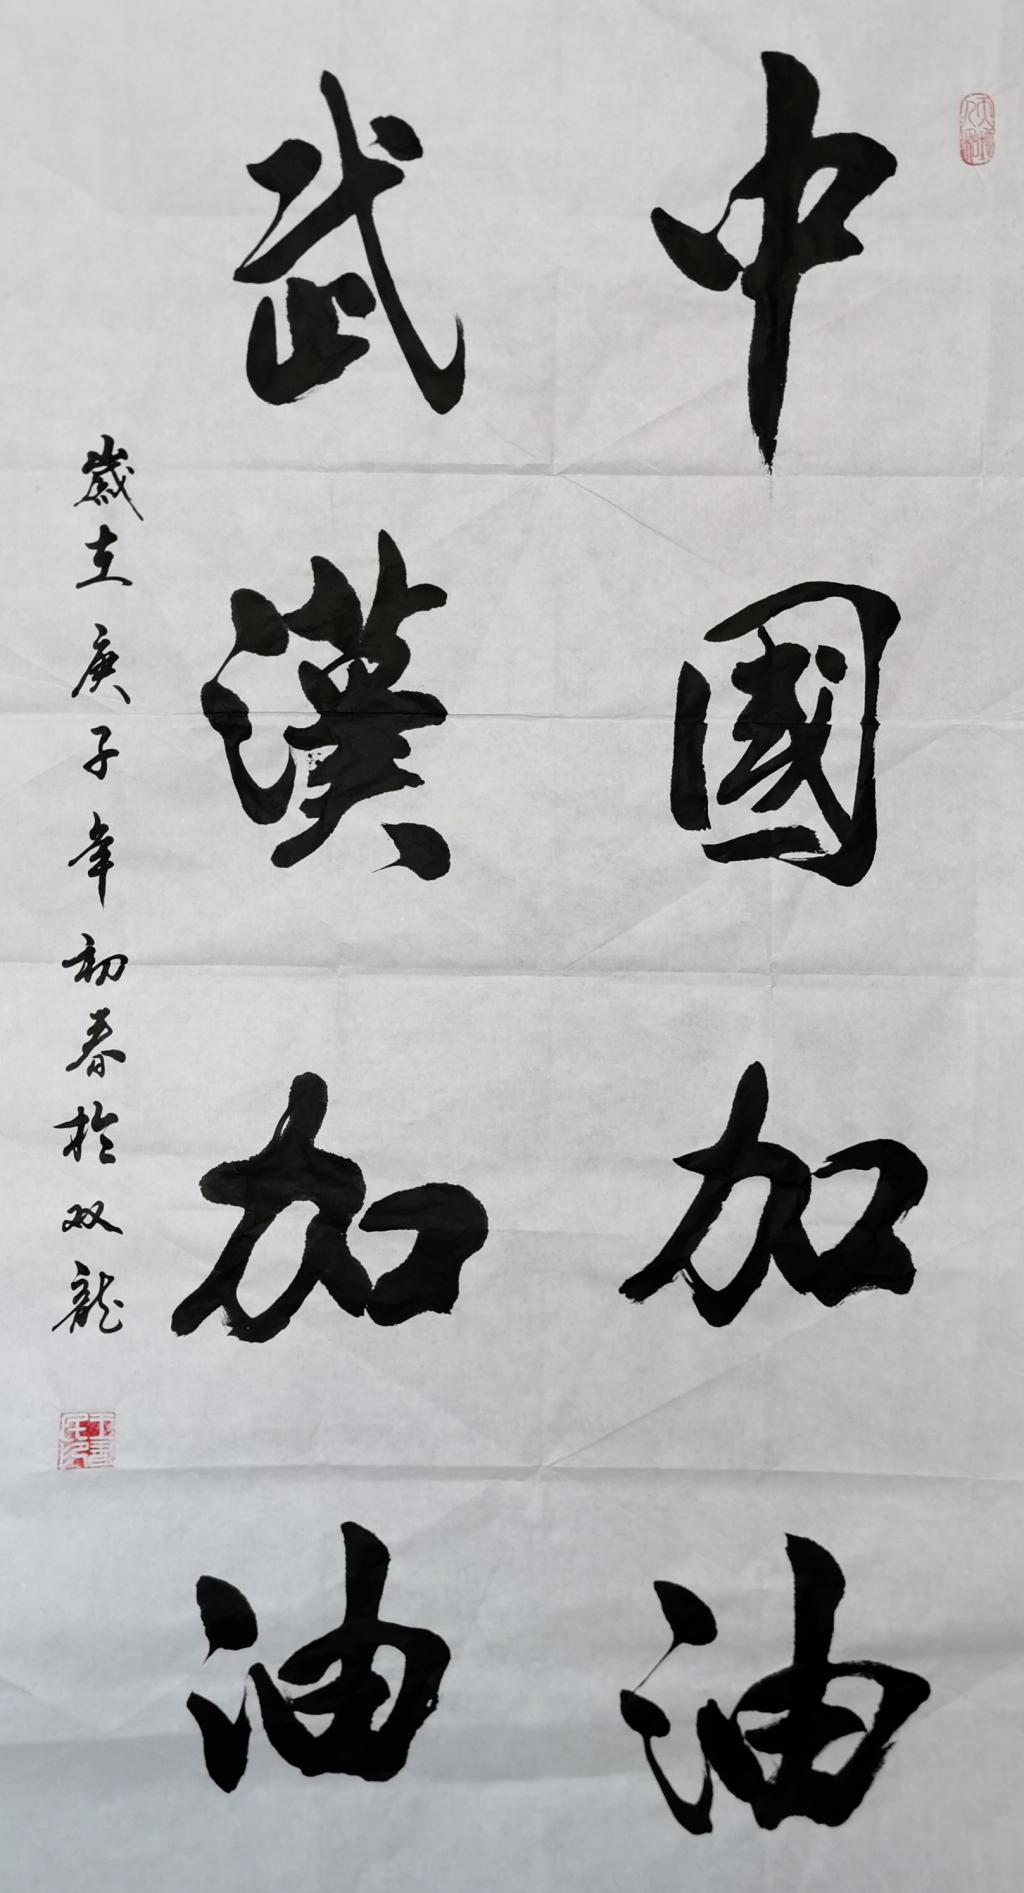 中國加油
武漢加油
歲在庚子年初春於双龍